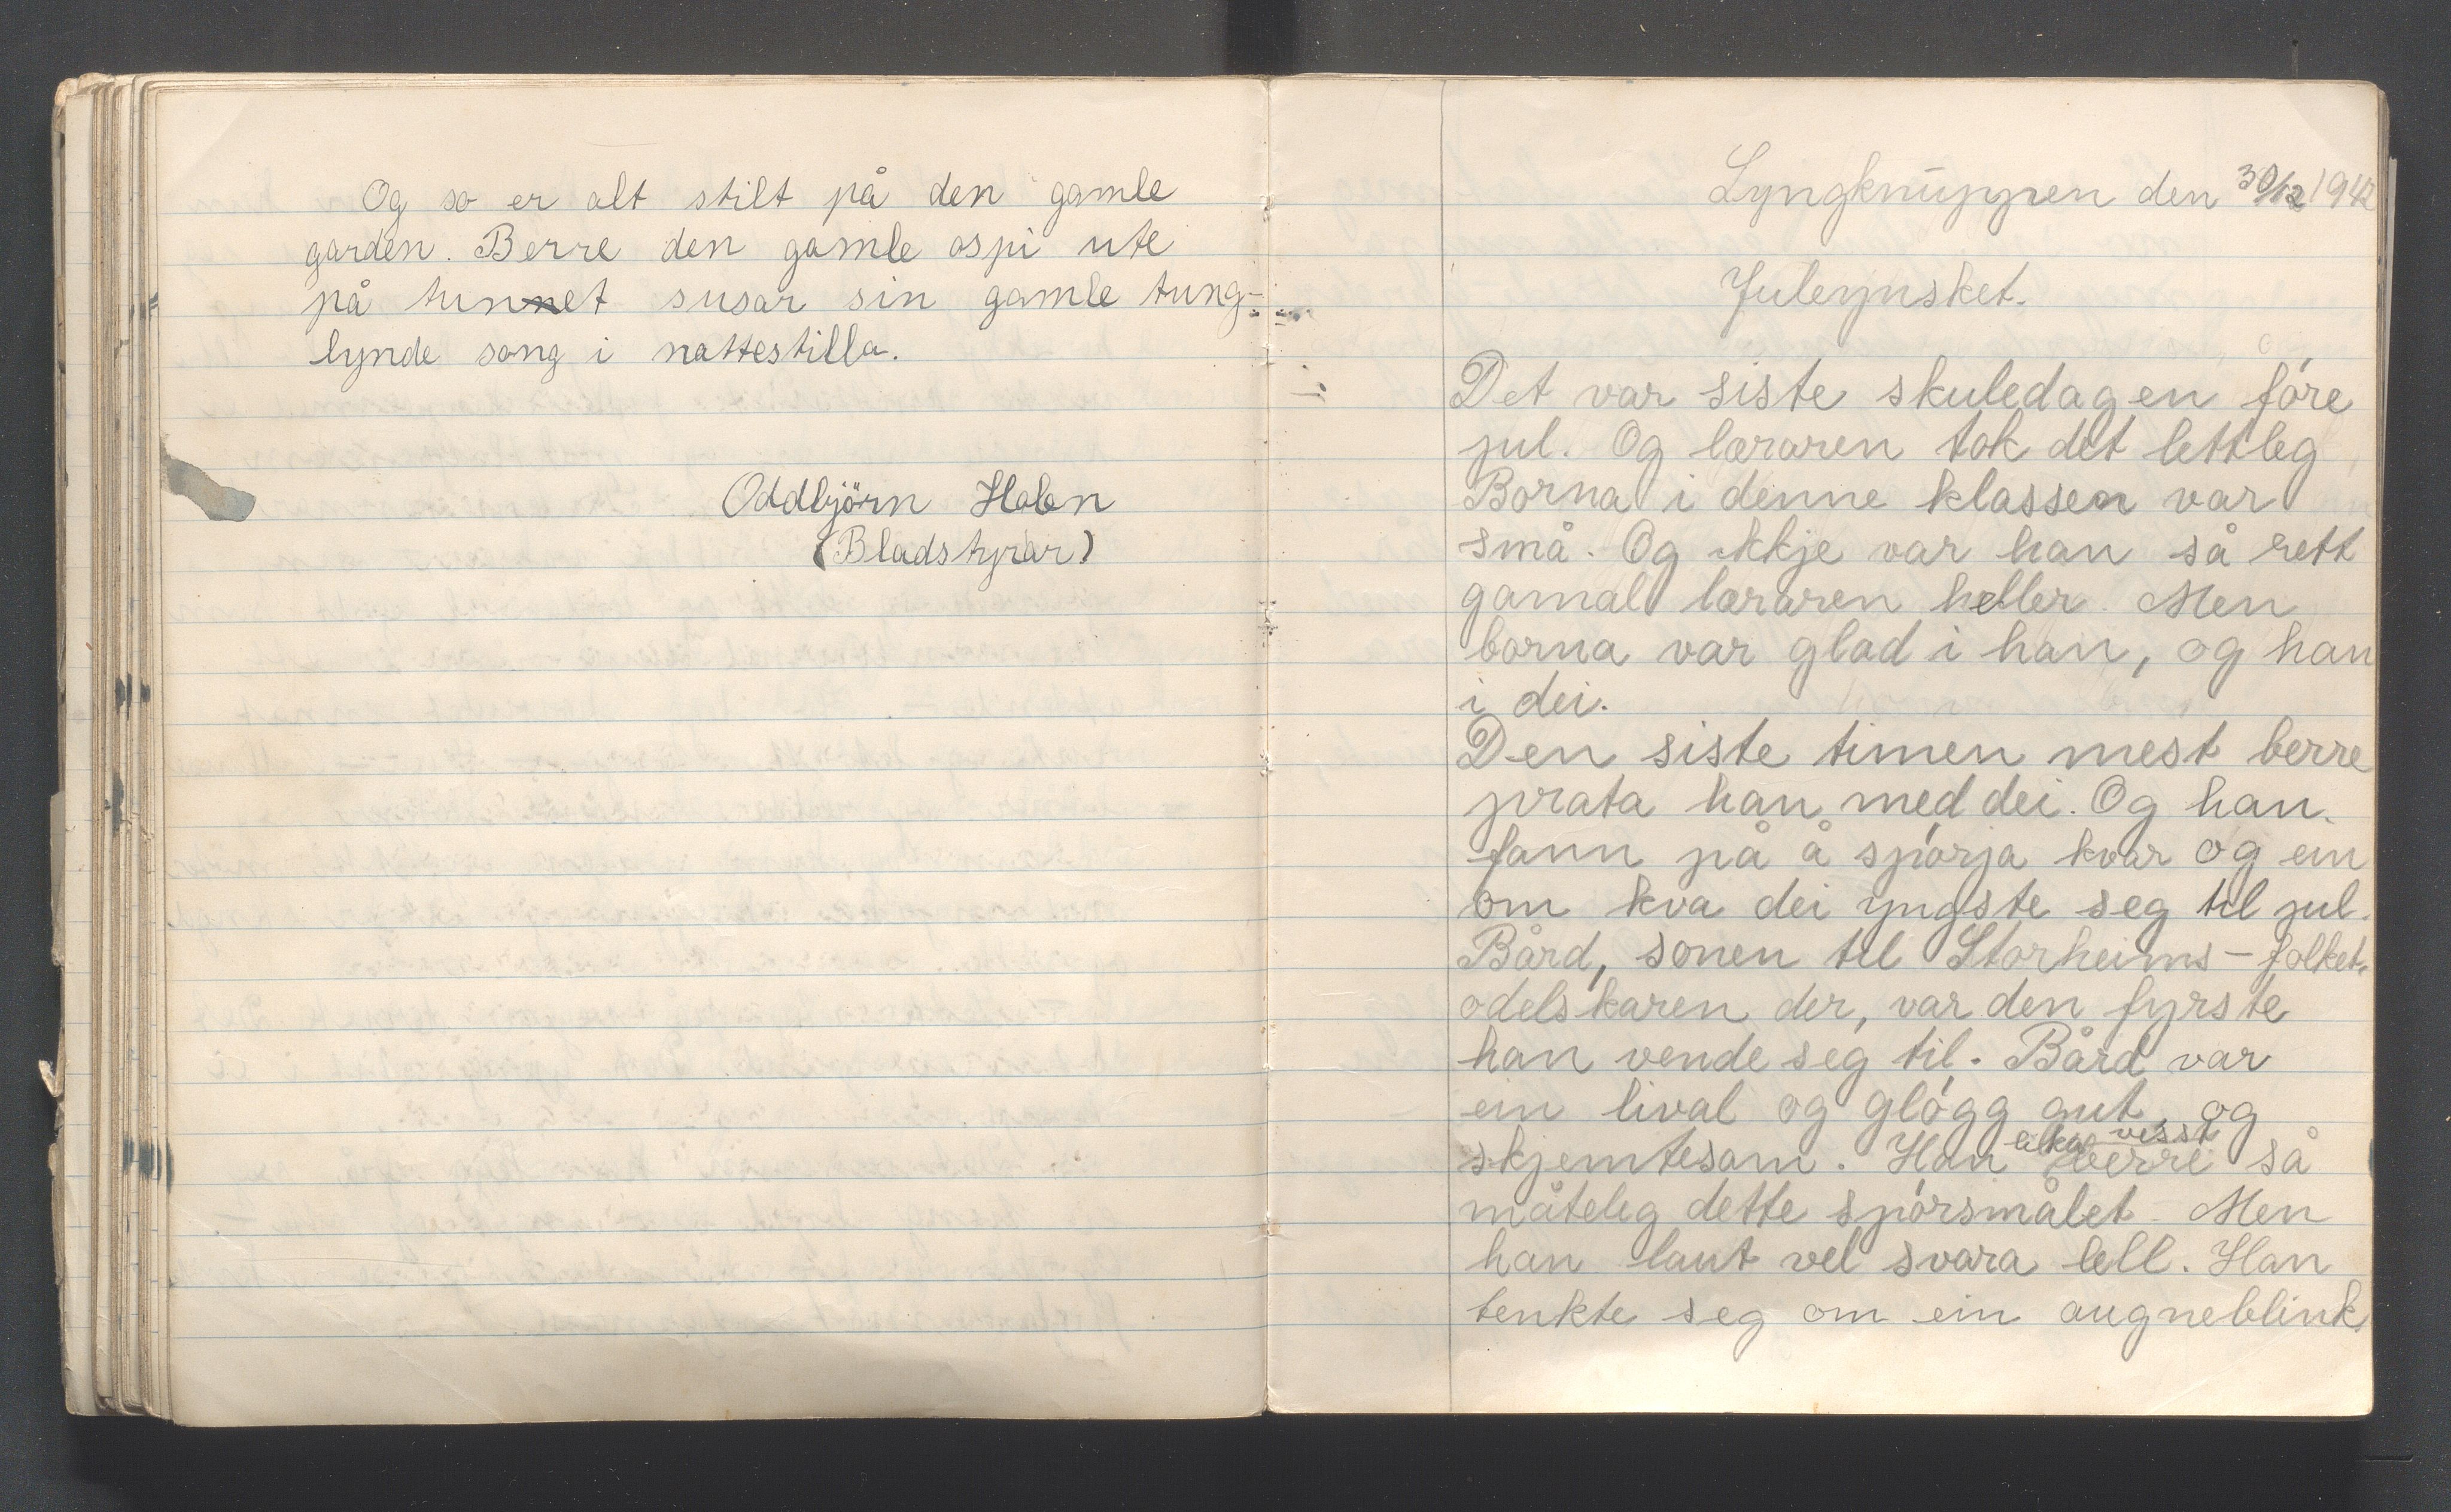 Og so er alt stilt på den gamle
garden. Berre den gamle ospi ute
på tunet susar sin gamle tung-
lynde song i nattestilla.
Oddbjörn Holen
(Bladstyrar)
Lyngknuppen den 30/12 1942
Juleynsket.
Det var siste skuledagen fóre
jul. Og læraren tok det lettleg
Borna i denne klassen var
små. Og ikkje var han så rett
gamal læraren heller. Men
borna var glad i han, og han
i dei.
Den siste timen mest berre
prata han med dei. Og han
fann på å spórja kvar og ein
om kva dei yngste seg til jul.
Bård, sonen til Storheims-folket,
odelskaren der, var den fyrste
han vende seg til. Bård var
ein lival og glógg gut, og
skjemtesam. Han lika visst berre så
måteleg dette spórsmålet. Men
han laut vel svara lell. Han
tenkte seg om ein augneblink